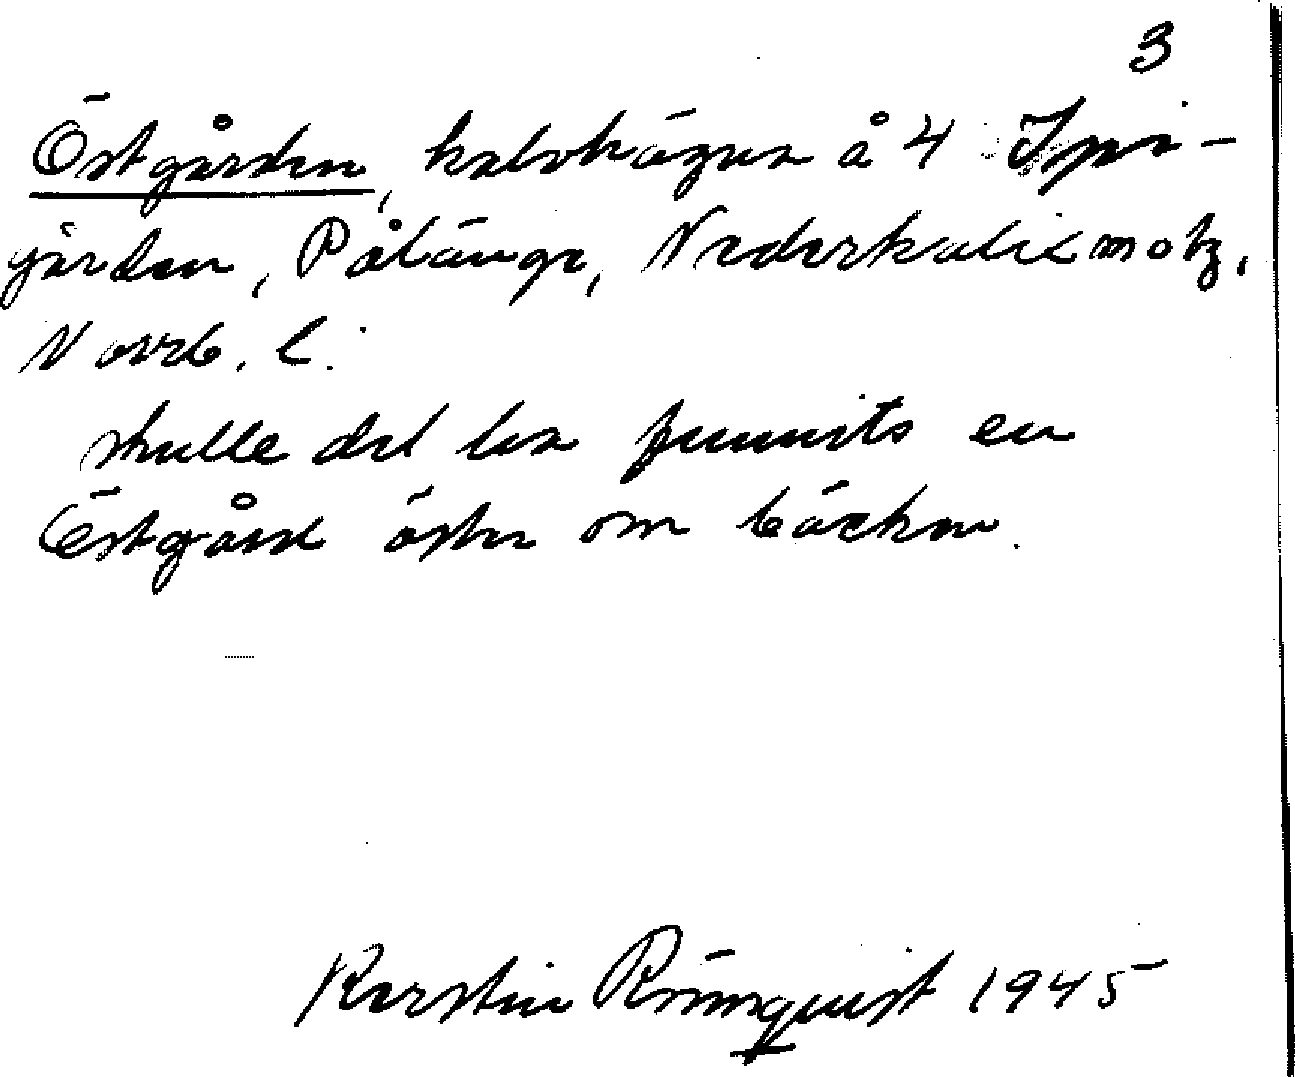 3
Östgården, kalvhägna å 4
gården, Pålänge, Nederkalix motz,
Norrb. l.
skulle det ha funnits en
Östgård öster om bäcken.
Kerstin Rönnquist 1945